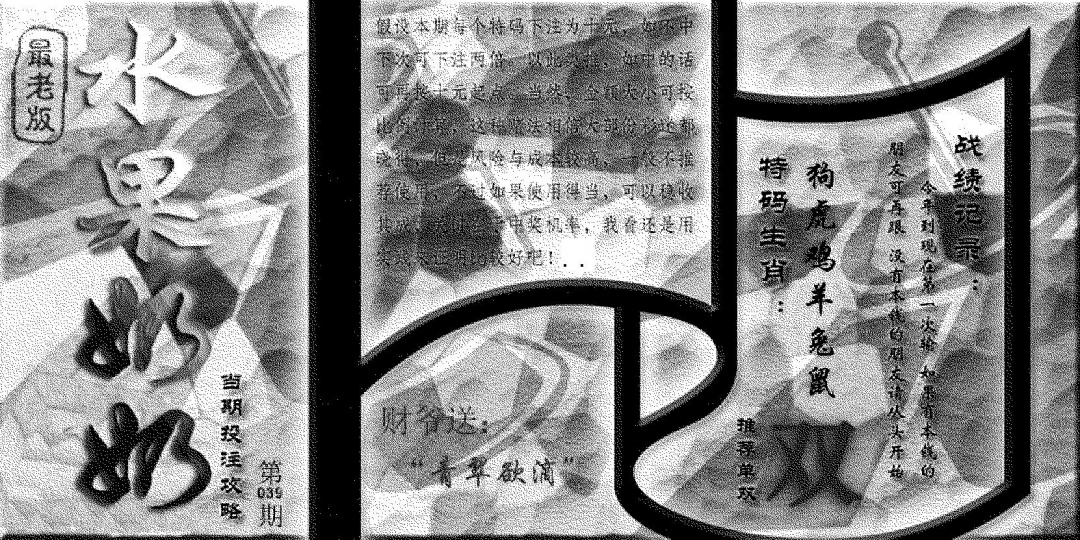 最老版
水果奶奶
当期投注攻略
第
039
期
假设本期每个特码下注为十元,如不中
下次可下注两倍,以此类推,如中的话
可再按十元起点,当然,金额大小可按
比例
这种赌法相信大部份彩迷都
晓得,但是风险与成本较高,一般不推
荐使用,不过如果使用得当,可以稳收
其成
中奖机率,我看还是用
比较好吧!..
财爷送:
“青翠欲滴”
战绩记录:
今年到现在第一次输 如果有本钱的
朋友可再跟 没有本钱的朋友请从头开始
特码生肖:
狗虎鸡羊兔鼠
推荐单双
双